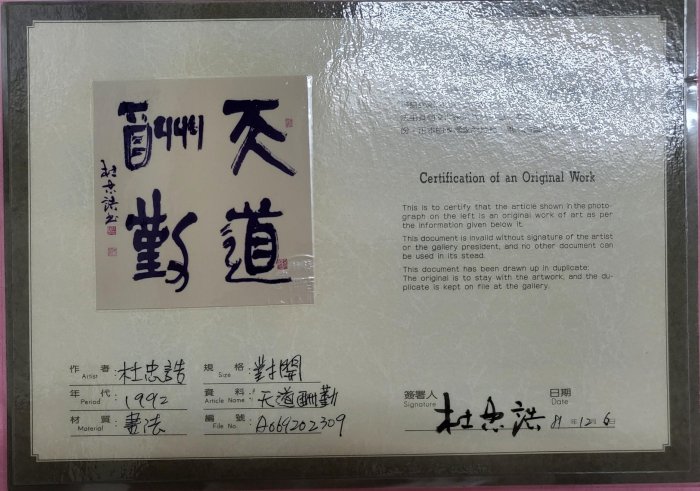 天道
酬勤
杜忠誥書
Certification of an Original Work
This is to certify that the article shown in the photo-
graph on the left is an original work of art as per
the information given below it.
This document is invalid without signature of the artist
or the gallery president, and no other document can
be used in its stead.
This document has been drawn up in duplicate.
The original is to stay with the artwork, and the du-
plicate is kept on file at the gallery.
作者 Artist : 杜忠誥 規格 Size : 對開
年代 Period : 1992 資料 Article Name : 天道酬勤
材質 Material : 書法 編號 File No. : A669202309
簽署人 Signature 杜忠誥 日期 Date 81年12月6日